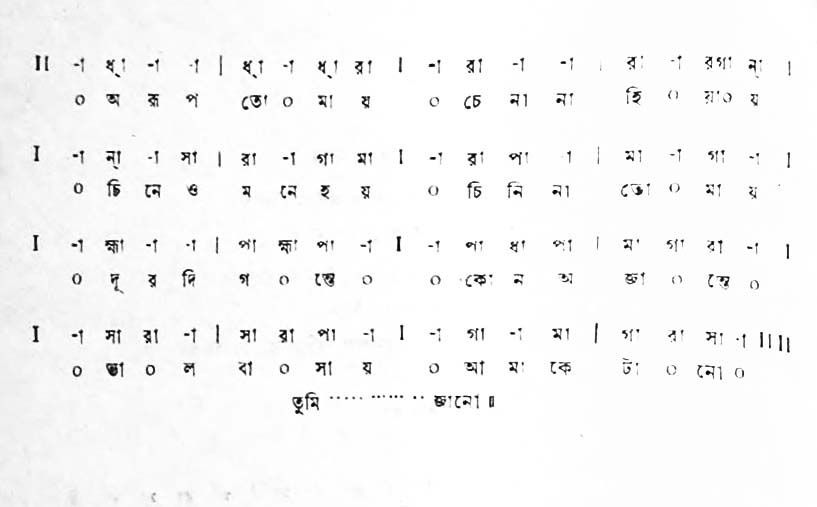 II -া ধ্া -া -া | ধ্া -া ধ্া রা I -া রা -া -া | রা -া রগা ন্া I
০ অ রূ প তো ০ মা য় ০ চে না না হি ০ য়া০ য়
I -া ন্া -া সা | রা -া গা মা I -া রা পা -া | মা -া গা -া I
০ চি নে ও ম নে হ য় ০ চি নি না তো ০ মা য়
I -া হ্মা -া -া | পা হ্মা পা -া I -া পা ধা পা | মা গা রা -া I
০ দূ র দি গ ০ ন্তে ০ ০ কো ন অ জা ০ ন্তে ০
I -া সা রা -া | সা রা পা -া I -া গা -া মা | গা রা সা -া II II
০ ভা ০ ল বা ০ সা য় ০ আ মা কে টা ০ নো ০
তুমি ..... ...... .. জানো ॥